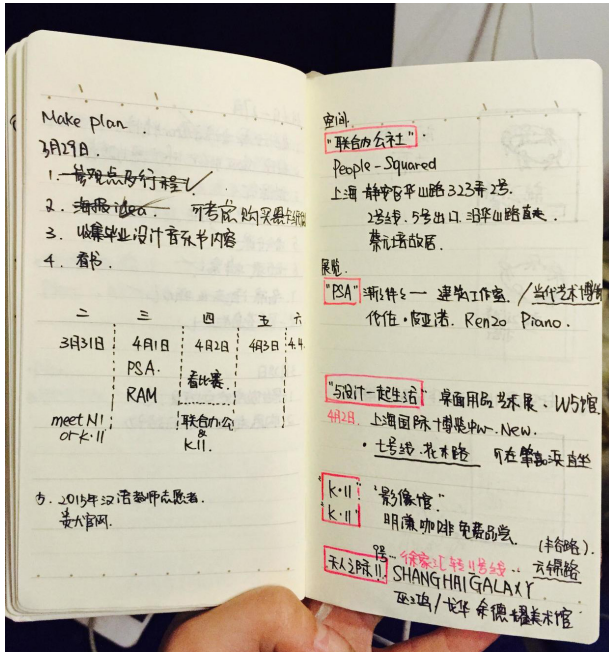 Make plan
3月29日.
1. 景观点及行程
2. 海报idea. 可考虑购买
3. 收集毕业设计音乐节内容
4. 看书.
二 三 四 五 六
3月31日 4月1日 4月2日 4月3日 4.4.
PSA. 看比赛.
RAM
meet N1 联合办公
or K·11 &
K11.
5. 2015年汉语教师志愿者.
贵大官网.
空间.
"联合办公社"
People-Squared
上海 静安区平山路323弄2号.
2号线. 5号出口. 沿平山路直走.
蔡元培故居.
展览.
"PSA" 建筑工作室. / 当代艺术博物馆
伦佐·皮亚诺. Renzo Piano.
"与设计一起生活" 桌面用品艺术展、W5馆.
4月2日. 上海国际博览中心. New.
• 七号线. 花木路
"K·11" "影像馆".
"K·11" 明谦咖啡免费品尝.
天人之际II. 9号 徐家汇转11号线.. 云锦路
SHANGHAI GALAXY
/龙华 余德耀美术馆